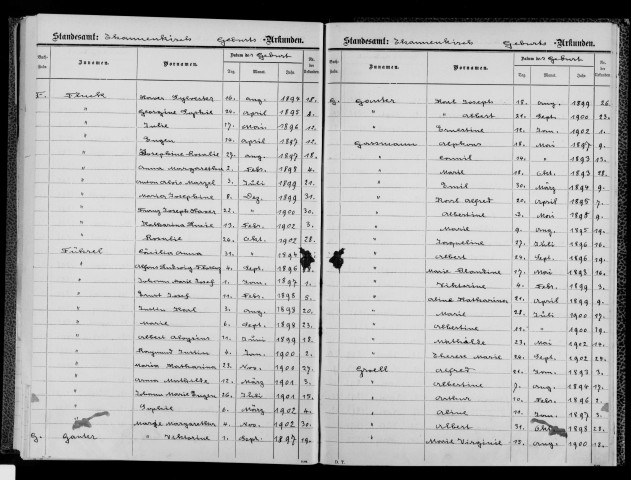 Standesamt: Thannenkirch Geburts-Urkunden.
Zunamen. Vornamen. Datum der Geburt Nr. der Urkunden
Tag. Monat. Jahr.
F. Flück Xaver Sylvester 16. Aug. 1894 18.
" Georgine Sophie 24. April 1895 8.
" Julie 17. Mai 1896 12.
" Eugen 14. April 1897 12.
" Josephine Rosalie 27. Aug. 1897 18.
" Anna Margaretha 2. Febr. 1898 4.
" Anton Alois Marzel 3. Juli 1899 21.
" Maria Josephine 8. Dez. 1899 31.
" Franz Joseph Xaver 22. " 1900 30.
" Katharina 13. Febr. 1902 3.
" Rosalie 26. Okt. 1902 28.
Führel Cäcilia Anna 31. " 1894
" Alfons Ludwig 4. Sept. 1896
" Johann Maria Josef 1. Jan. 1897 1.
" Ernst Josef 11. Febr. 1898 5.
" Justin Karl 3. Aug. 1898 20.
" Marie 6. Sept. 1898 23.
" Albert Aloysius Juni 1899 18.
" Raymund Justin 4. Jan. 1900 2.
" Maria Katharina 23. Nov. 1900 27.
" Anna Mathilde 12. März 1901 3.
" Johann Maria Eugen 26. Juli 1901 15.
" Sophie 6. März 1902 4.
" Margaretha 4. Nov. 1902 30.
G. Ganter " Viktorine 1. Sept. 1897 19.
Standesamt: Thannenkirch Geburts-Urkunden.
Zunamen. Vornamen. Datum der Geburt Nr. der Urkunden
Tag. Monat. Jahr.
G. Ganter Karl Joseph 18. Aug. 1899 26.
" " Albert 21. Sept. 1900 23.
" Ernestine 12. Jan. 1902 1.
Gassmann Alphons 18. Mai 1897 9.
" Camil 14. " 1893 13.
" Marie 18. Okt. 1893 18.
" Emil 30. März 1894 9.
" Karl Alfred 20. April 1895 7.
" Albertine 3. Mai 1895 9.
" Marie 9. Aug. 1895 19.
" Jaqueline 27. Juli 1896 16.
" Albert 24. Sept. 1896 19.
" Marie Blandine 17. Mai 1898 16.
" Viktorine 4. Febr. 1899 3.
" Aline Katharina 21. April 1899 9.
" Marie 28. Juli 1900 17.
" Albertine 11. " 1900 19.
" Mathilde 23. Mai 1902 14.
" Therese Marie 24. Sept. 1902 25.
Groell Alfred 21. Jan. 1893 3.
" Albertine 7. Aug. 1894 17.
" Arthur 10. Febr. 1896 2.
" Aline 11. Jan. 1897 3.
" Albert 31. Okt. 1898 28.
" Marie Virginie 15. Aug. 1900 18.